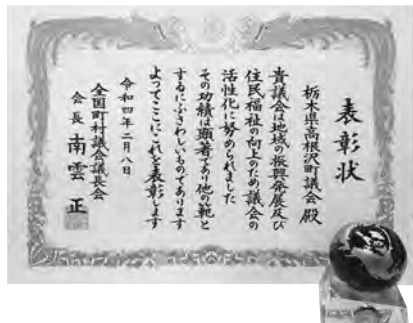 表彰状
栃木県高根沢町議会 殿
貴議会は地域の振興発展及び
住民福祉の向上のため議会の
活性化に努められました
その功績は顕著であり他の範と
するにふさわしいものであります
よってここにこれを表彰します
令和四年二月八日
全国町村議会議長会
会長 南雲 正